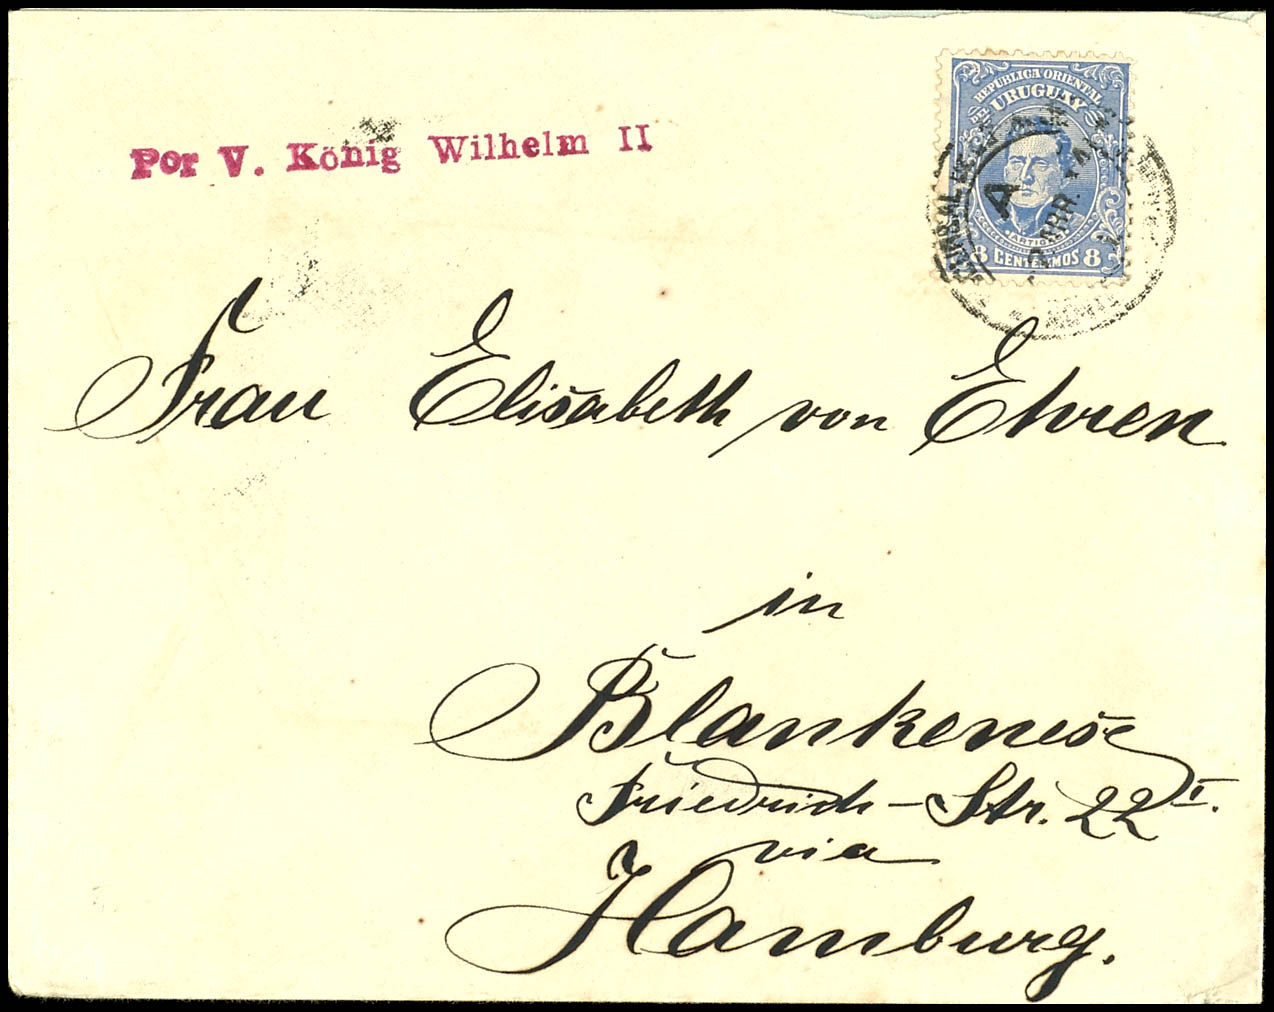 Por V. König Wilhelm II
REPUBLICA ORIENTAL
DEL URUGUAY
ARTIGAS
8 CENTESIMOS 8
A
ABR. 14
Frau Elisabeth von Ehren
in
Blankenese
Friedrich-Str. 22 I.
via
Hamburg.